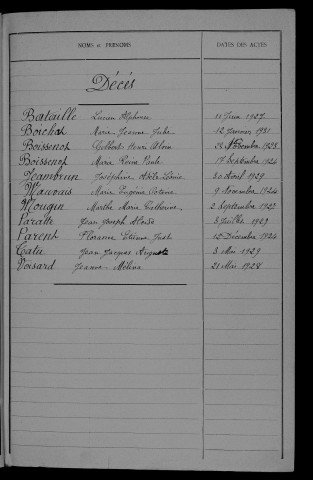 NOMS et PRÉNOMS DATES DES ACTES
Décès
Bataille Lucien Alphonse 11 Juin 1927
Boichot Marie Jeanne Julie 12 Janvier 1931
Boissenot Gilbert Henri Alvin 28 Novembre 1923
Boissenot Marie Louise Paule 17 Septembre 1924
Jeambrun Joséphine Adèle Léonie 30 Avril 1929
Marie Eugène Octave 9 Novembre 1924
Mougin Marthe Marie Catherine 2 Septembre 1927
Paratte Jean Joseph Aloïse 3 Juillet 1929
Parent Florenne Etienne Just 12 Décembre 1924
Catu Jean Jacques Auguste 3 Mai 1929
Voisard Jeanne Mélina 21 Mai 1928